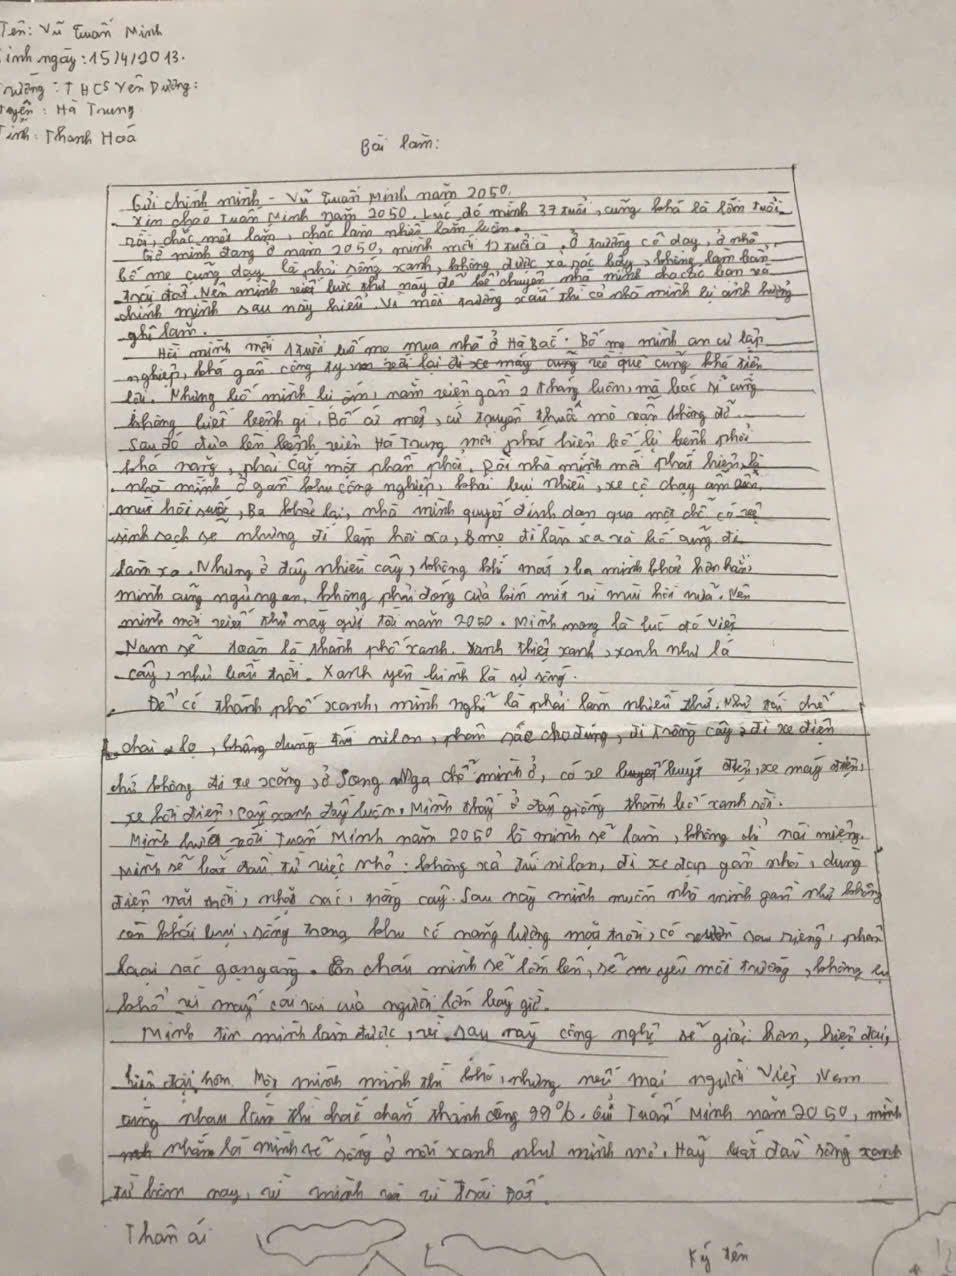 Tên: Vũ Tuấn Minh
Sinh ngày: 15/4/2013.
Trường: THCS Yên Dương:
Huyện: Hà Trung
Tỉnh: Thanh Hoá
Bài làm:
Gửi chính mình - Vũ Tuấn Minh năm 2050.
Xin chào Tuấn Minh năm 2050. Lúc đó mình 37 tuổi, cũng khá là lớn tuổi
rồi, chắc mệt lắm, chắc làm nhiều lắm luôn.
Giờ mình đang ở năm 2050, mình mới 12 tuổi à. Ở trường cô dạy, ở nhà
bố mẹ cũng dạy là phải sống xanh, không được xả rác bậy, không làm bẩn
trái đất. Nên mình viết bức thư này để kể chuyện nhà mình cho các bạn và
chính mình sau này hiểu. Vì môi trường xấu thì cả nhà mình bị ảnh hưởng
ghê lắm.
Hồi mình mới 1 tuổi bố mẹ mua nhà ở Hà Bắc. Bố mẹ mình an cư lập
nghiệp, khá gần công ty đi xe máy cũng về quê cũng khá tiện
lợi. Nhưng bố mình bị ốm, nằm viện gần 2 tháng luôn, mà bác sĩ cũng
không biết bệnh gì. Bố cứ mệt, cứ truyền thuốc mà vẫn không đỡ.
Sau đó đưa lên bệnh viện Hà Trung mới phát hiện bố bị bệnh phổi
khá nặng, phải cắt một phần phổi. Rồi nhà mình mới phát hiện là
nhà mình ở gần khu công nghiệp, khói bụi nhiều, xe cộ chạy ầm ầm,
mùi hôi suốt. Ba khoẻ lại, nhà mình quyết định dọn qua một chỗ có vệ
sinh sạch sẽ nhưng đi làm hơi xa, mẹ đi làm xa và bố cũng đi
làm xa. Nhưng ở đây nhiều cây, không khí mát, ba mình khoẻ hơn hẳn,
mình cũng ngủ ngon, không phải đóng cửa kín mít vì mùi hôi nữa. Nên
mình mới viết thư này gửi tới năm 2050. Mình mong là lúc đó Việt
Nam sẽ toàn là thành phố xanh. Xanh thiệt xanh, xanh như lá
cây, như bầu trời. Xanh yên bình là sự sống.
Để có thành phố xanh, mình nghĩ là phải làm nhiều thứ. Như tái chế
chai lọ, không dùng túi nilon, phân rác cho đúng, đi trồng cây, đi xe điện
chứ không đi xe xăng, ở Song Nga chỗ mình ở, có xe buýt điện, xe máy điện,
xe hơi điện, cây xanh đầy luôn. Mình thấy ở đây giống thành phố xanh rồi.
Mình hứa với Tuấn Minh năm 2050 là mình sẽ làm, không chỉ nói miệng.
Mình sẽ bắt đầu từ việc nhỏ: không xả túi nilon, đi xe đạp gần nhà, dùng
điện mặt trời, nhặt rác, trồng cây. Sau này mình muốn nhà mình gần như không
còn khói bụi, sống trong khu có năng lượng mặt trời, có vườn rau riêng, phân
loại rác gọn gàng. Con cháu mình sẽ lớn lên, sẽ yêu môi trường, không bị
khổ vì mấy cái sai của người lớn bây giờ.
Mình tin mình làm được, vì sau này công nghệ sẽ giỏi hơn, hiện đại,
hiện đại hơn. Một mình mình thì khó, nhưng nếu mọi người Việt Nam
cùng nhau làm thì chắc chắn thành công 99%. Gửi Tuấn Minh năm 2050, mình
nhắn là mình sẽ sống ở nơi xanh như mình mơ. Hãy bắt đầu sống xanh
từ hôm nay, vì mình và vì trái đất.
Thân ái
Ký tên